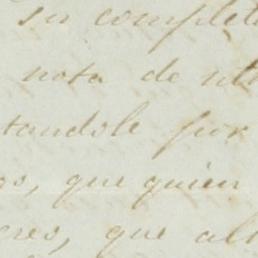 su complet
nota de ult
tandole por
os, que quien
eres, que alt